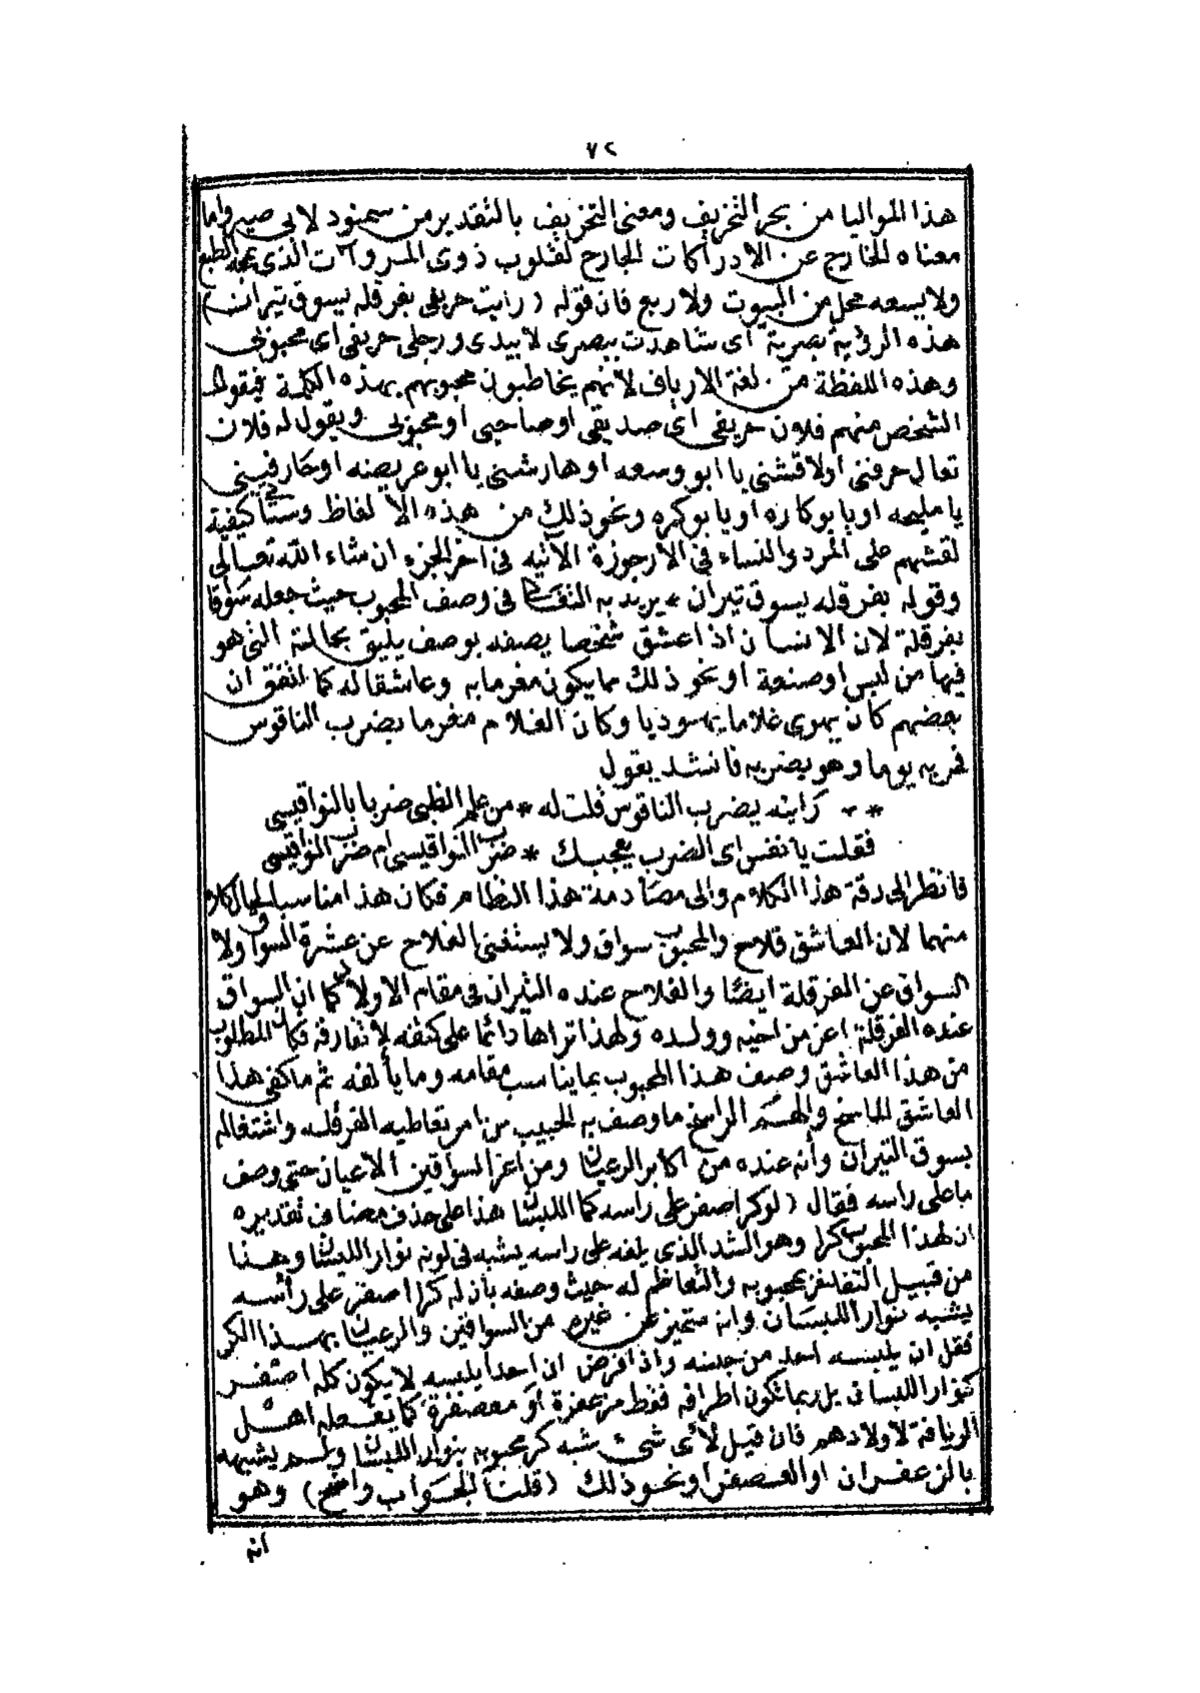 ٧٢
هذا المواليا من بحر التخريف ومعنى التخريف بالتقدير من سمنود لابى صير واما
معناه الخارج عن الادراكات الجارح لقلوب ذوى المروآت الذى يمجه الطبع
ولا يسعه محل من البيوت ولا ربع فان قوله (رايت حريفى بفرقله يسوق تيران)
هذه الرؤية بصرية اى شاهدت ببصرى لا بيدى ورجلى حريفى اى محبوبى
وهذه اللفظة من لغة الارياف لانهم يخاطبون محبوبهم بهذه الكلمة فيقول
الشخص منهم فلان حريفى اى صديقى او صاحبى او محبوبى ويقول له فلان
تعال حرفنى اولا قشنى يا ابو وسعه او هارشنى يا ابو عريضه او حارفينى
يا مليحه او يا بوكاره او يا بوكره ونحو ذلك من هذه الالفاظ وستأتى كيفية
لقشهم على المرد والنساء فى الارجوزة الآتيه فى اخر الجزء ان شاء الله تعالى
وقوله بفرقله يسوق تيران * يريد به التغالى فى وصف المحبوب حيث جعله سواقا
بفرقلة لان الانسان اذا عشق شخصا يصفه بوصف يليق بحالته التى هو
فيها من لبس او صنعة او نحو ذلك مما يكون مغرما به وعاشقا له كما اتفق ان
بعضهم كان يهوى غلاما يهوديا وكان الغلام مغرما بضرب الناقوس
فمر به يوما وهو يضربه فانشد يقول
** رايته يضرب الناقوس قلت له * من علم الظبى ضربا بالنواقيسى
فقلت يا نفس اى الضرب يعجبك * ضرب النواقيسى ام ضرب النوى قيسى
فانظر الى رقة هذا الكلام والى مصادمة هذا النظام فكان هذا مناسبا لحال كلا
منهما لان العاشق فلاح والمحبوب سواق ولا يستغنى الفلاح عن عشرة السواق ولا
السواق عن الفرقلة ايضا والفلاح عنده الثيران فى مقام الاولاد كما ان السواق
عنده الفرقلة اعز من اخيه وولده ولهذا تراها دائما على كتفه لا تفارقه فكان المطلوب
من هذا العاشق وصف هذا المحبوب بما يناسب مقامه وما يألفه ثم ما كفى هذا
العاشق الماسخ والهم الراسخ ما وصف به الحبيب من امر تعاطيه الفرقله واشتغاله
بسوق التيران وأنه عنده من اكابر الرعيان ومن اعز السواقين الاعيان حتى وصف
ما على راسه فقال (لو كر اصفر على راسه كما اللبسان هذا على حذف مضاف تقديره
ان لهذا المحبوب كرا وهو الشد الذى يلفه على راسه يشبه فى لونه نوار اللبسان وهذا
من قبيل التفاخر بمحبوبه والتعاظم له حيث وصفه بان له كرا اصفر على رأسه
يشبه نوار اللبسان وانه متميز عن غيره من السواقين والرعيان بهذا الكر
فقل ان يلبسه احد من جنسه واذا فرض ان احدا يلبسه لا يكون كله اصفر
كنوار اللبسان بل ربما تكون اطرافه فقط مزعفرة او معصفرة كما يفعله اهل
الريافة لاولادهم فان قيل لأى شىء شبه كر محبوبه بنوار اللبسان ولم يشبهه
بالزعفران او العصفر او نحو ذلك (قلنا الجواب واضح) وهو
انه